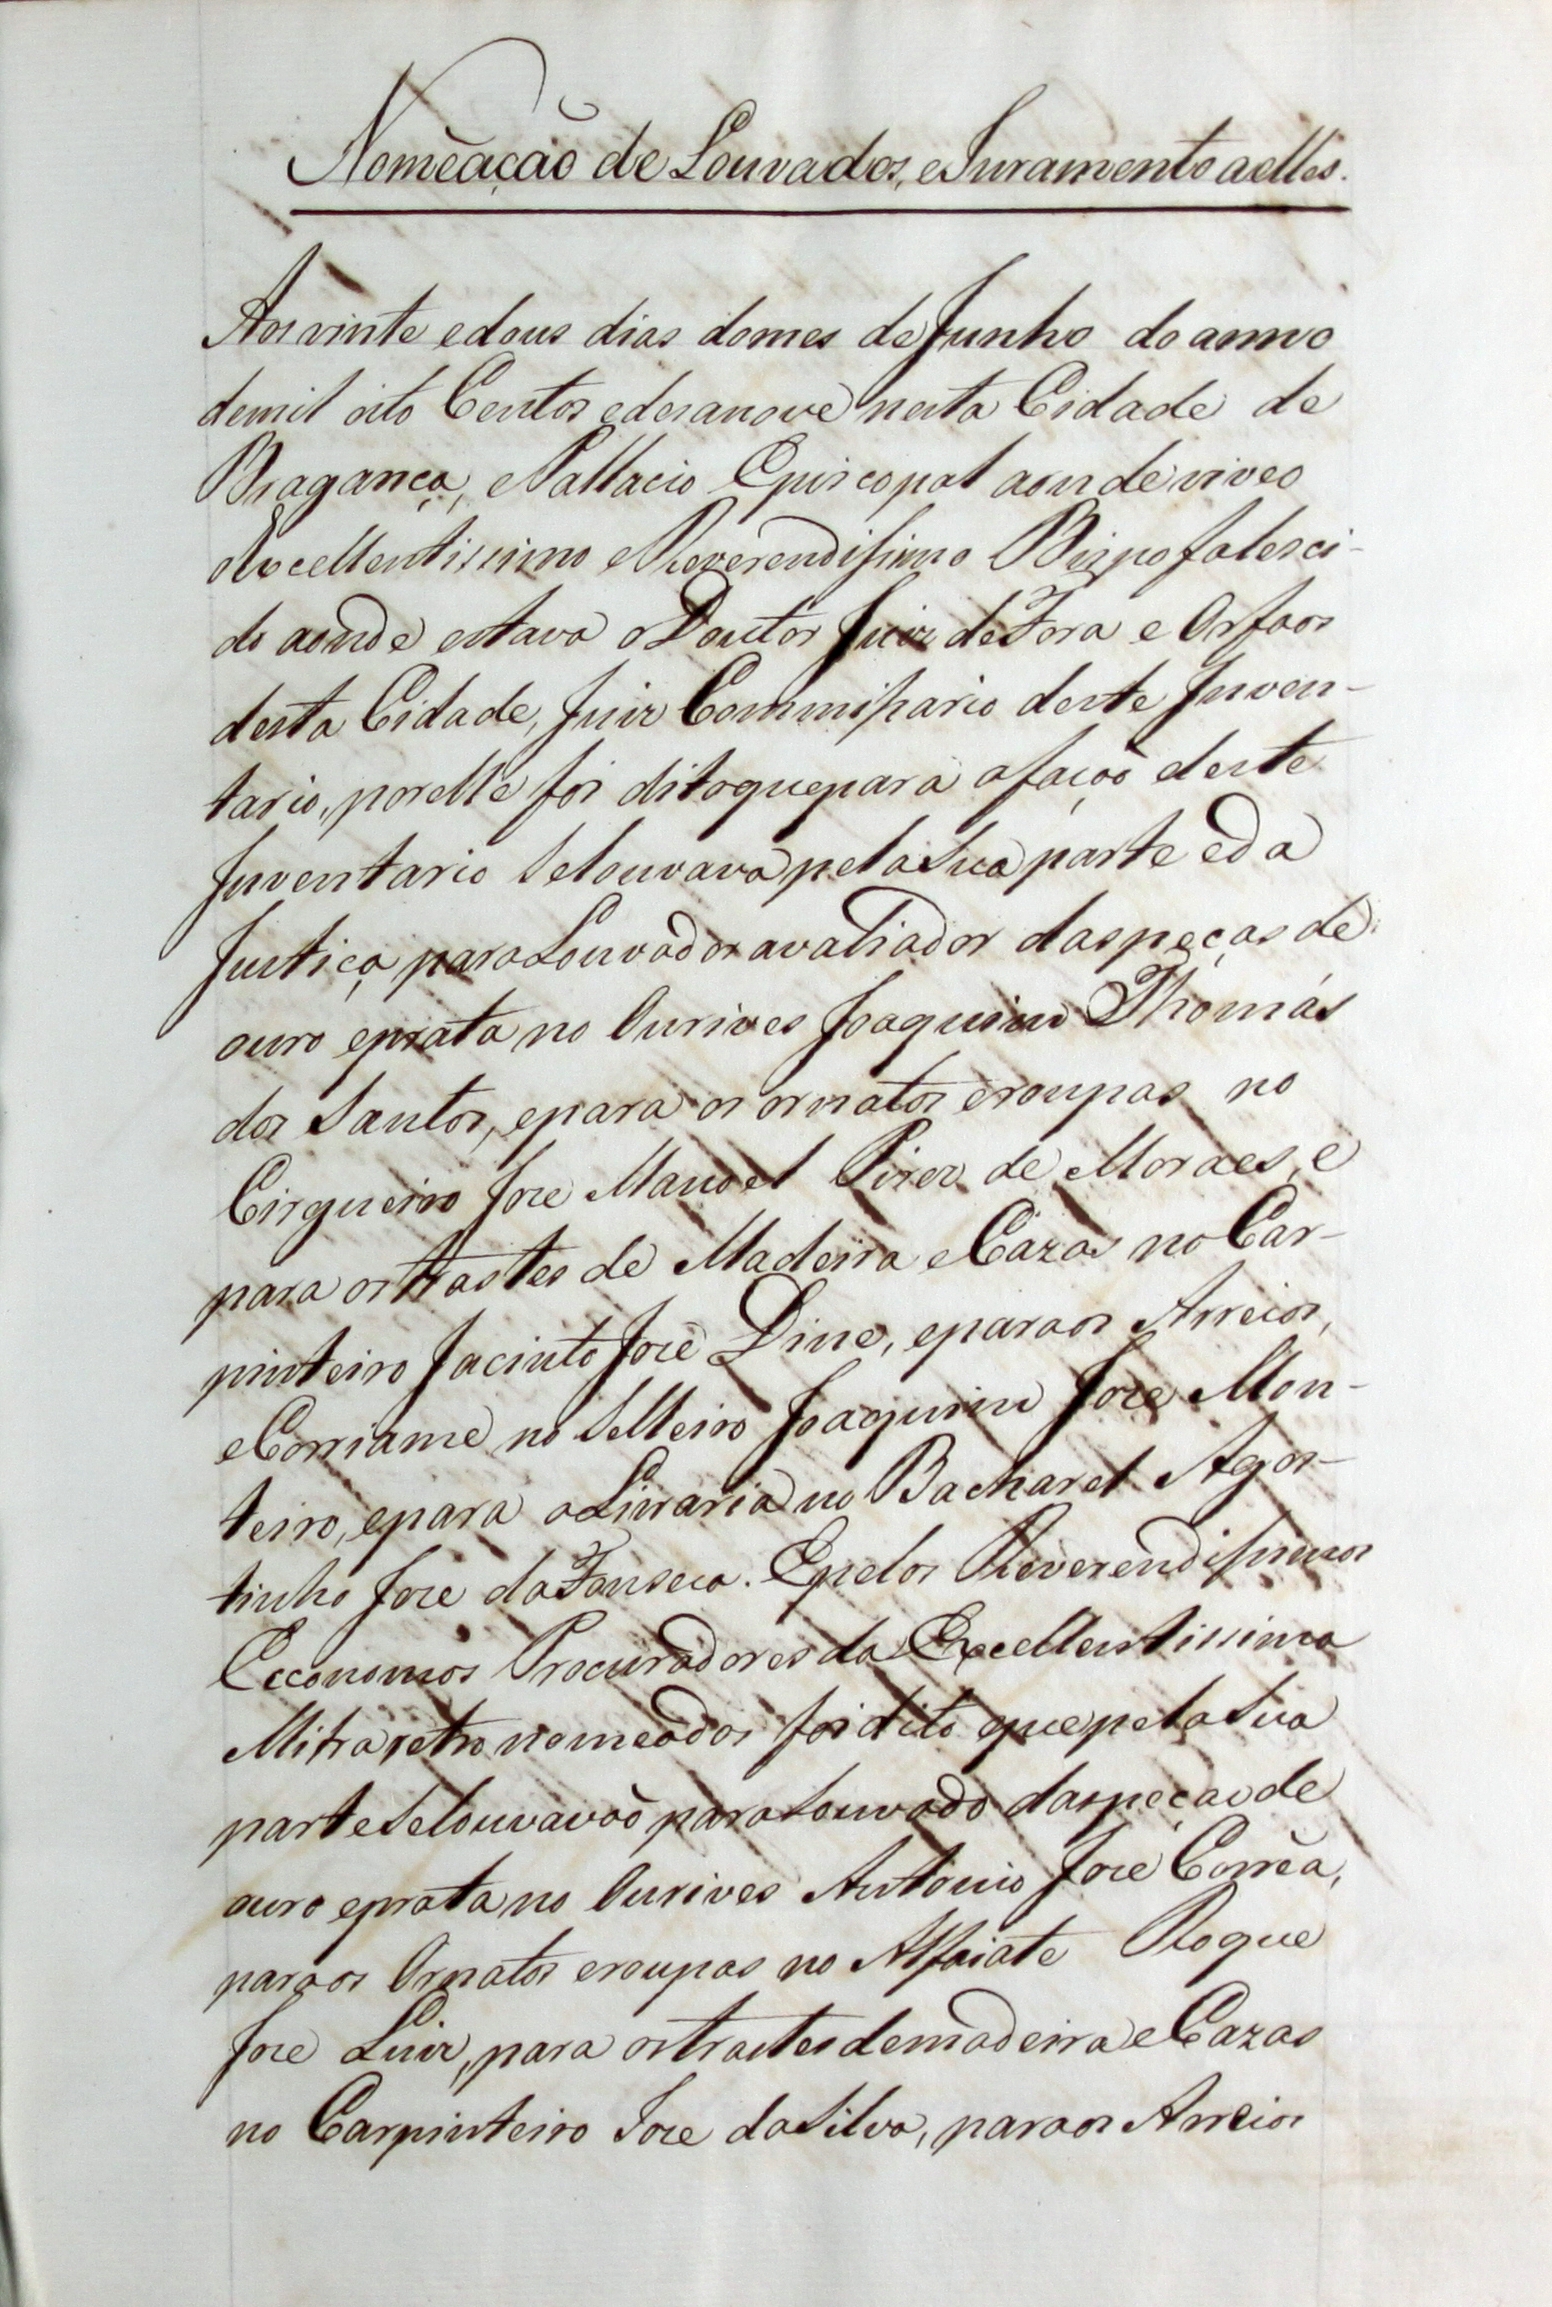 Nomeação de Louvados, e Juramento a elles.
Aos vinte e dous dias do mes de Junho do anno
de mil oito Centos e desanove nesta Cidade de
Bragança, e Pallacio Episcopal aonde viveo
o Excellentissimo e Reverendissimo Bispo falesci-
do aonde estava o Doutor Juiz de Fora e Orfaos
desta Cidade, Juiz Commissario deste Inven-
tario, por elle foi dito que para a façaõ deste
Inventario se louvava pela sua parte e da
Justiça para Louvados avaliador das peças de
ouro e prata no Ourives Joaquim Thomás
dos Santos, e para os ornatos e roupas no
Cirgueiro Joze Manoel Pirez de Moraes, e
para os trastes de Madeira e Cazas no Car-
pinteiro Jacinto Jozé Dine, e para os Arreios,
e Corriame no Selleiro Joaquim Joze Mon-
teiro, e para a Livraria no Bacharel Agos-
tinho Joze da Fonseca. E pelos Reverendissimos
Economos Procuradores da Excellentissima
Mitra retro nomeados foi dito que pela sua
parte se louvavaõ para Louvado das peças de
ouro e prata no Ourives Antonio Jozé Corrêa,
para os Ornatos e roupas no Alfaiate Roque
Joze Luiz, para os trastes de madeira e Cazas
no Carpinteiro Joze da Silva, para os Arreios